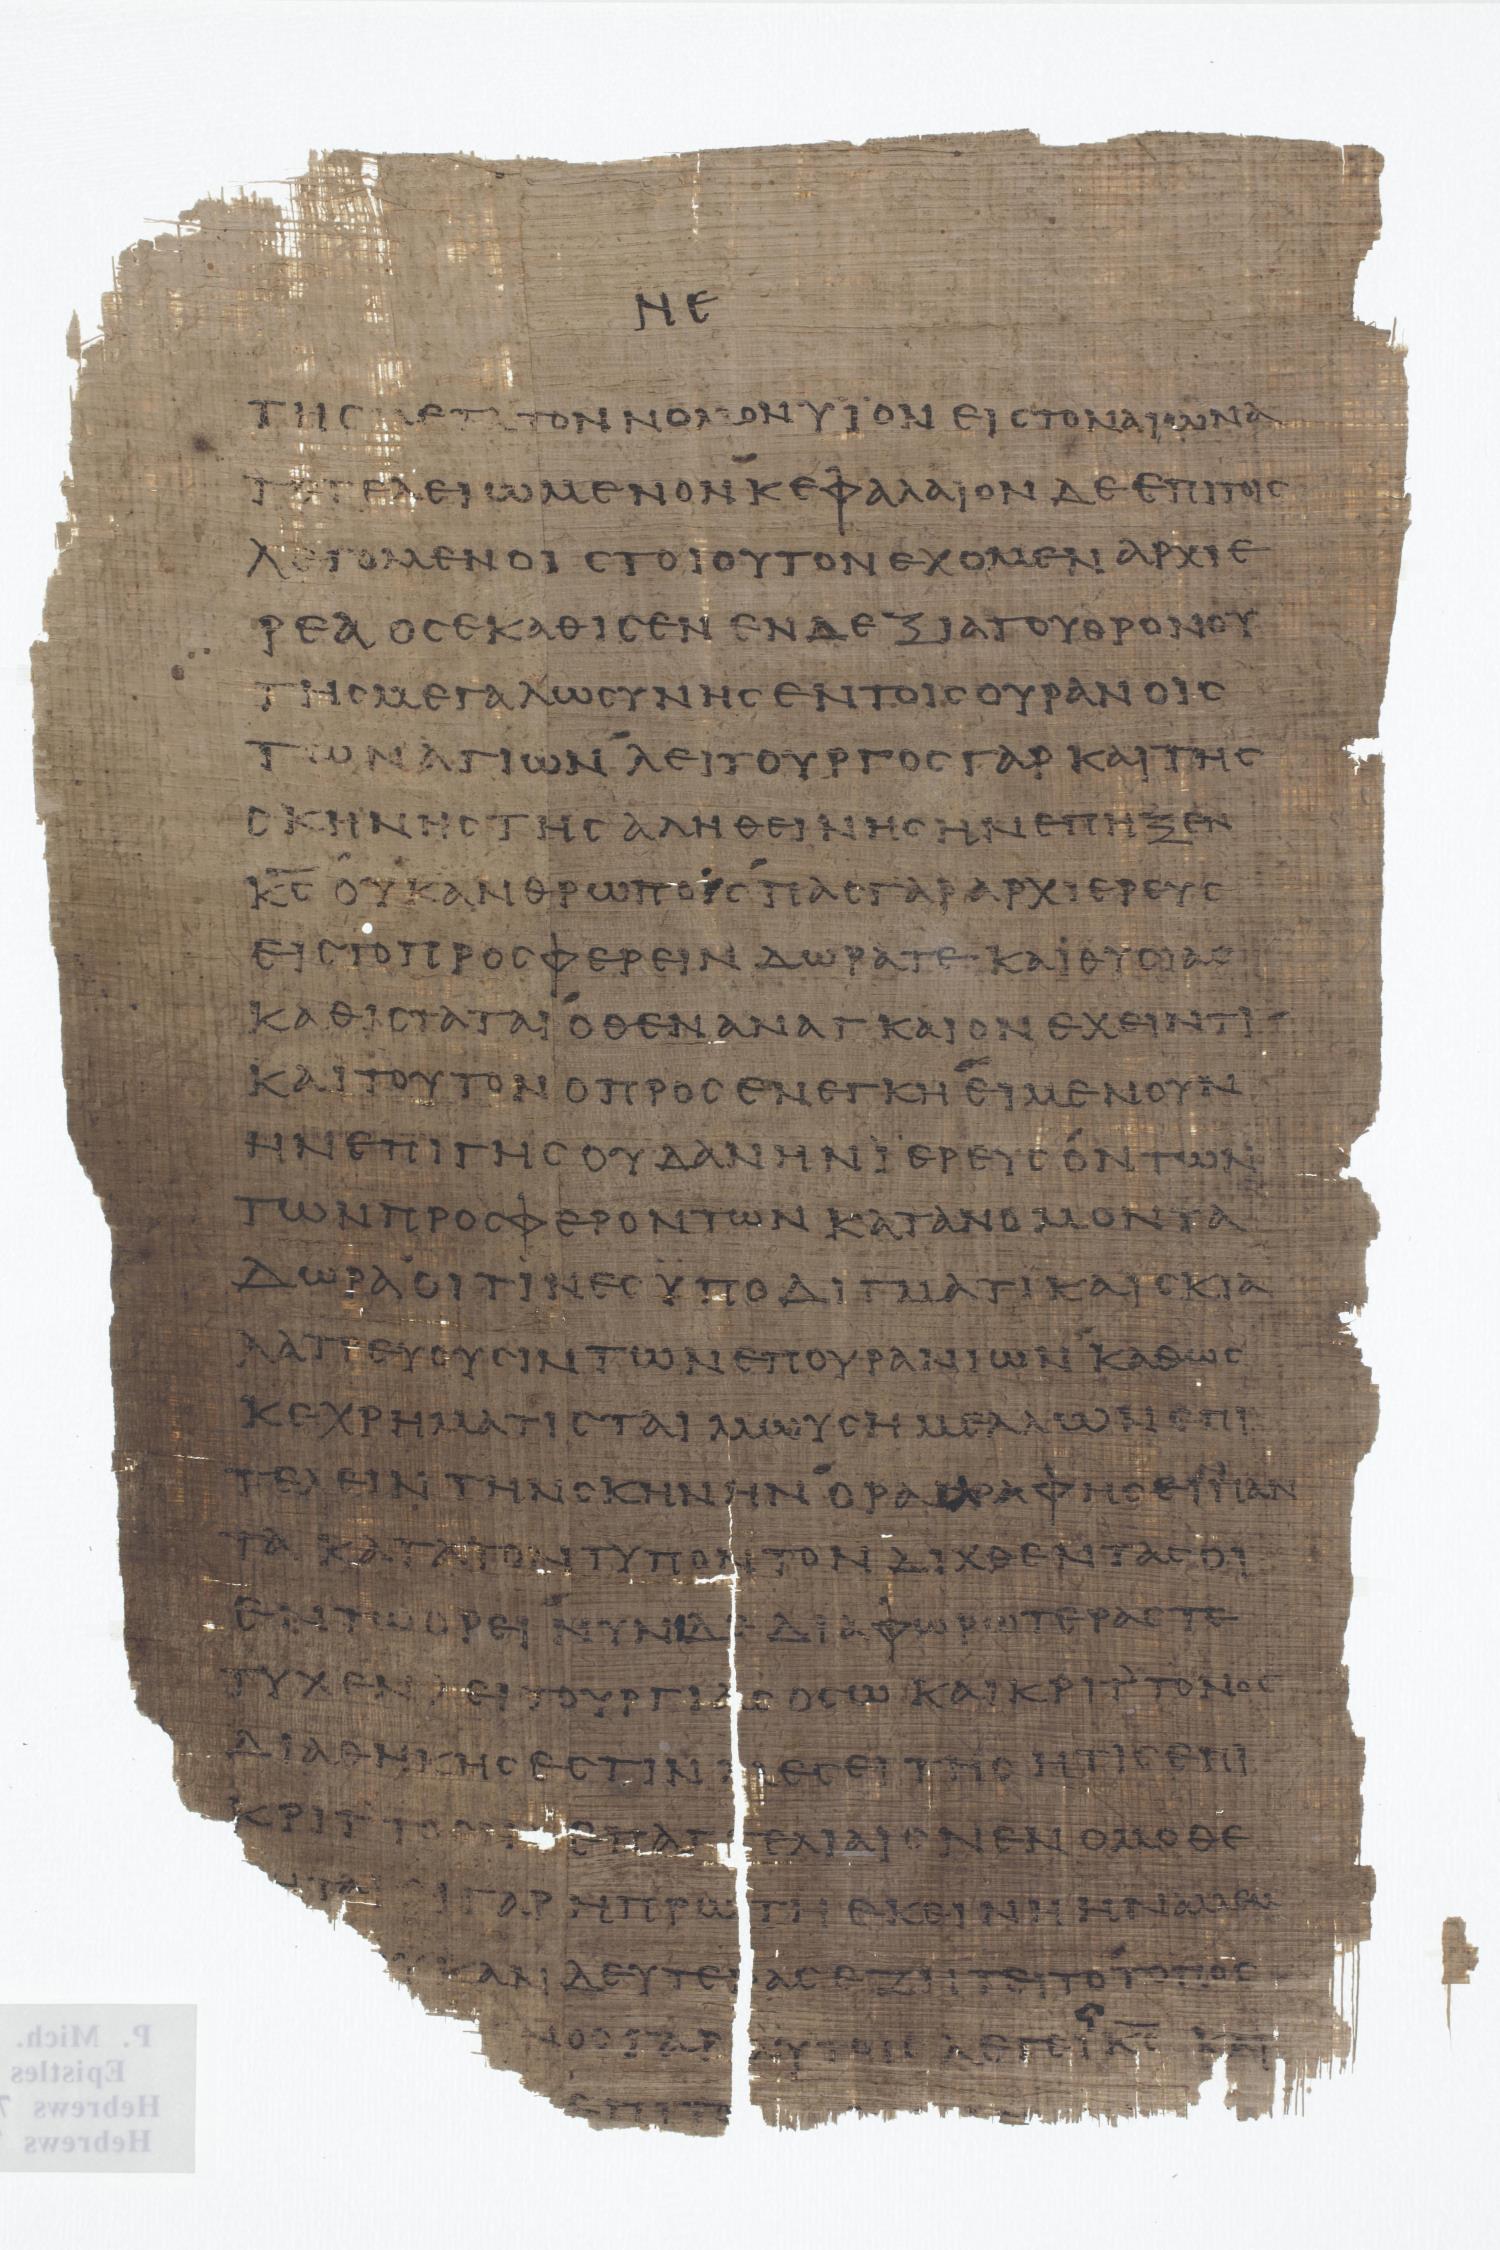 ΝΕ
ΤΗϹ ΜΕΤΑ ΤΟΝ ΝΟΜΟΝ ΥΪΟΝ ΕΙϹ ΤΟΝ ΑΙΩΝΑ
ΤΕΤΕΛΕΙΩΜΕΝΟΝ ΚΕΦΑΛΑΙΟΝ ΔΕ ΕΠΙ ΤΟΙϹ
ΛΕΓΟΜΕΝΟΙϹ ΤΟΙΟΥΤΟΝ ΕΧΟΜΕΝ ΑΡΧΙΕ
ΡΕΑ ΟϹ ΕΚΑΘΙϹΕΝ ΕΝ ΔΕΞΙΑ ΤΟΥ ΘΡΟΝΟΥ
ΤΗϹ ΜΕΓΑΛΩϹΥΝΗϹ ΕΝ ΤΟΙϹ ΟΥΡΑΝΟΙϹ
ΤΩΝ ΑΓΙΩΝ ΛΕΙΤΟΥΡΓΟϹ ΓΑΡ ΚΑΙ ΤΗϹ
ϹΚΗΝΗϹ ΤΗϹ ΑΛΗΘΕΙΝΗϹ ΗΝ ΕΠΗΞΕΝ
Κ̅Ϲ̅ ΟΥΚ ΑΝΘΡΩΠΟΙϹ ΠΑϹ ΓΑΡ ΑΡΧΙΕΡΕΥϹ
ΕΙϹ ΤΟ ΠΡΟϹΦΕΡΕΙΝ ΔΩΡΑ ΤΕ ΚΑΙ ΘΥϹΙΑϹ
ΚΑΘΙϹΤΑΤΑΙ ΟΘΕΝ ΑΝΑΓΚΑΙΟΝ ΕΧΕΙΝ ΤΙ
ΚΑΙ ΤΟΥΤΟΝ Ο ΠΡΟϹΕΝΕΓΚΗ ΕΙ ΜΕΝ ΟΥΝ
ΗΝ ΕΠΙ ΓΗϹ ΟΥΔ ΑΝ ΗΝ ΪΕΡΕΥϹ ΟΝΤΩΝ
ΤΩΝ ΠΡΟϹΦΕΡΟΝΤΩΝ ΚΑΤΑ ΝΟΜΟΝ ΤΑ
ΔΩΡΑ ΟΙΤΙΝΕϹ ΫΠΟΔΙΓΜΑΤΙ ΚΑΙ ϹΚΙΑ
ΛΑΤΡΕΥΟΥϹΙΝ ΤΩΝ ΕΠΟΥΡΑΝΙΩΝ ΚΑΘΩϹ
ΚΕΧΡΗΜΑΤΙϹΤΑΙ ΜΩΥϹΗ ΜΕΛΛΩΝ ΕΠΙ
ΤΕΛΕΙΝ ΤΗΝ ϹΚΗΝΗΝ ΟΡΑ ΠΑΝ
ΤΑ ΚΑΤΑ ΤΟΝ ΤΥΠΟΝ ΤΟΝ ΔΙΧΘΕΝΤΑ ϹΟΙ
ΕΝ ΤΩ ΟΡΕΙ ΝΥΝ ΔΕ ΔΙΑΦΩΡΩΤΕΡΑϹ ΤΕ
ΤΥΧΕΝ ΛΕΙΤΟΥΡΓΙΑϹ ΟϹΩ ΚΑΙ ΚΡΙΤΤΟΝΟϹ
ΔΙΑΘΗΚΗϹ ΕϹΤΙΝ ΜΕϹΕΙΤΗϹ ΗΤΙϹ ΕΠΙ
ΚΡΙΤΤΟϹΙΝ ΕΠΑΓΓΕΛΙΑΙϹ ΝΕΝΟΜΟΘΕ
ΤΑΙ ΕΙ ΓΑΡ Η ΠΡΩΤΗ ΕΚΕΙΝΗ ΗΝ ΑΜΕΜ
ΔΕΥΤΕΡΑϹ ΕΖΗΤΕΙΤΟ ΤΟΠΟϹ
ΓΑΡ ΑΥΤΟΙϹ ΛΕΓΕΙ Κ̅Ϲ̅ ΚΑΙ
ΕΠΙ